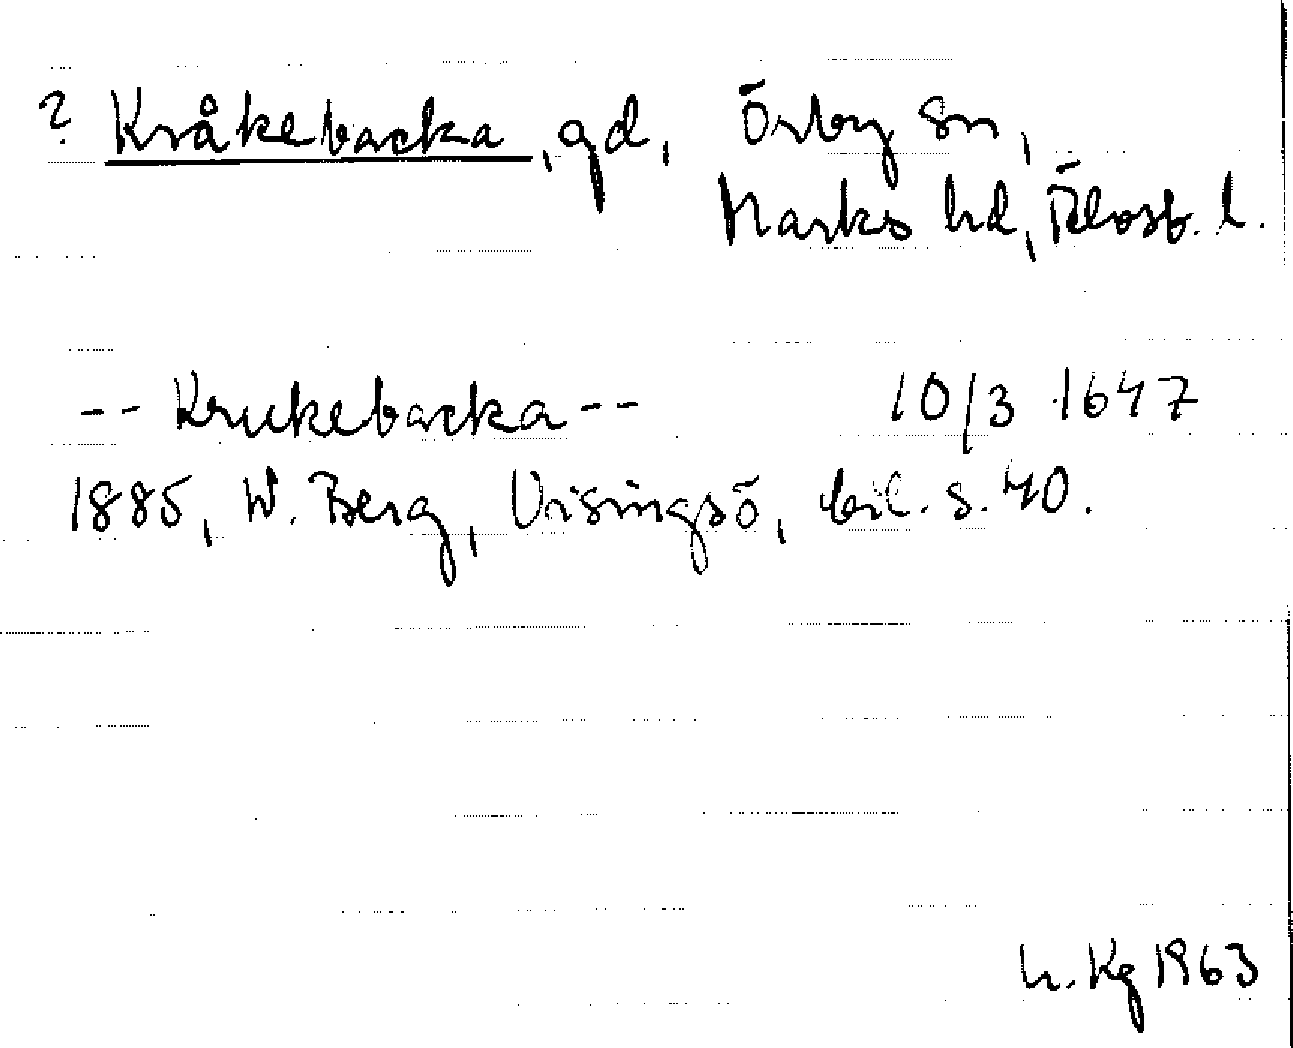 ? Kråkebacka, gd, Örby sn,
Marks hd, Älvsb. l.
-- Krukebacka -- 10/3 1647
1885, W. Berg, Visingsö, bil. s. 40.
h. Kg 1963